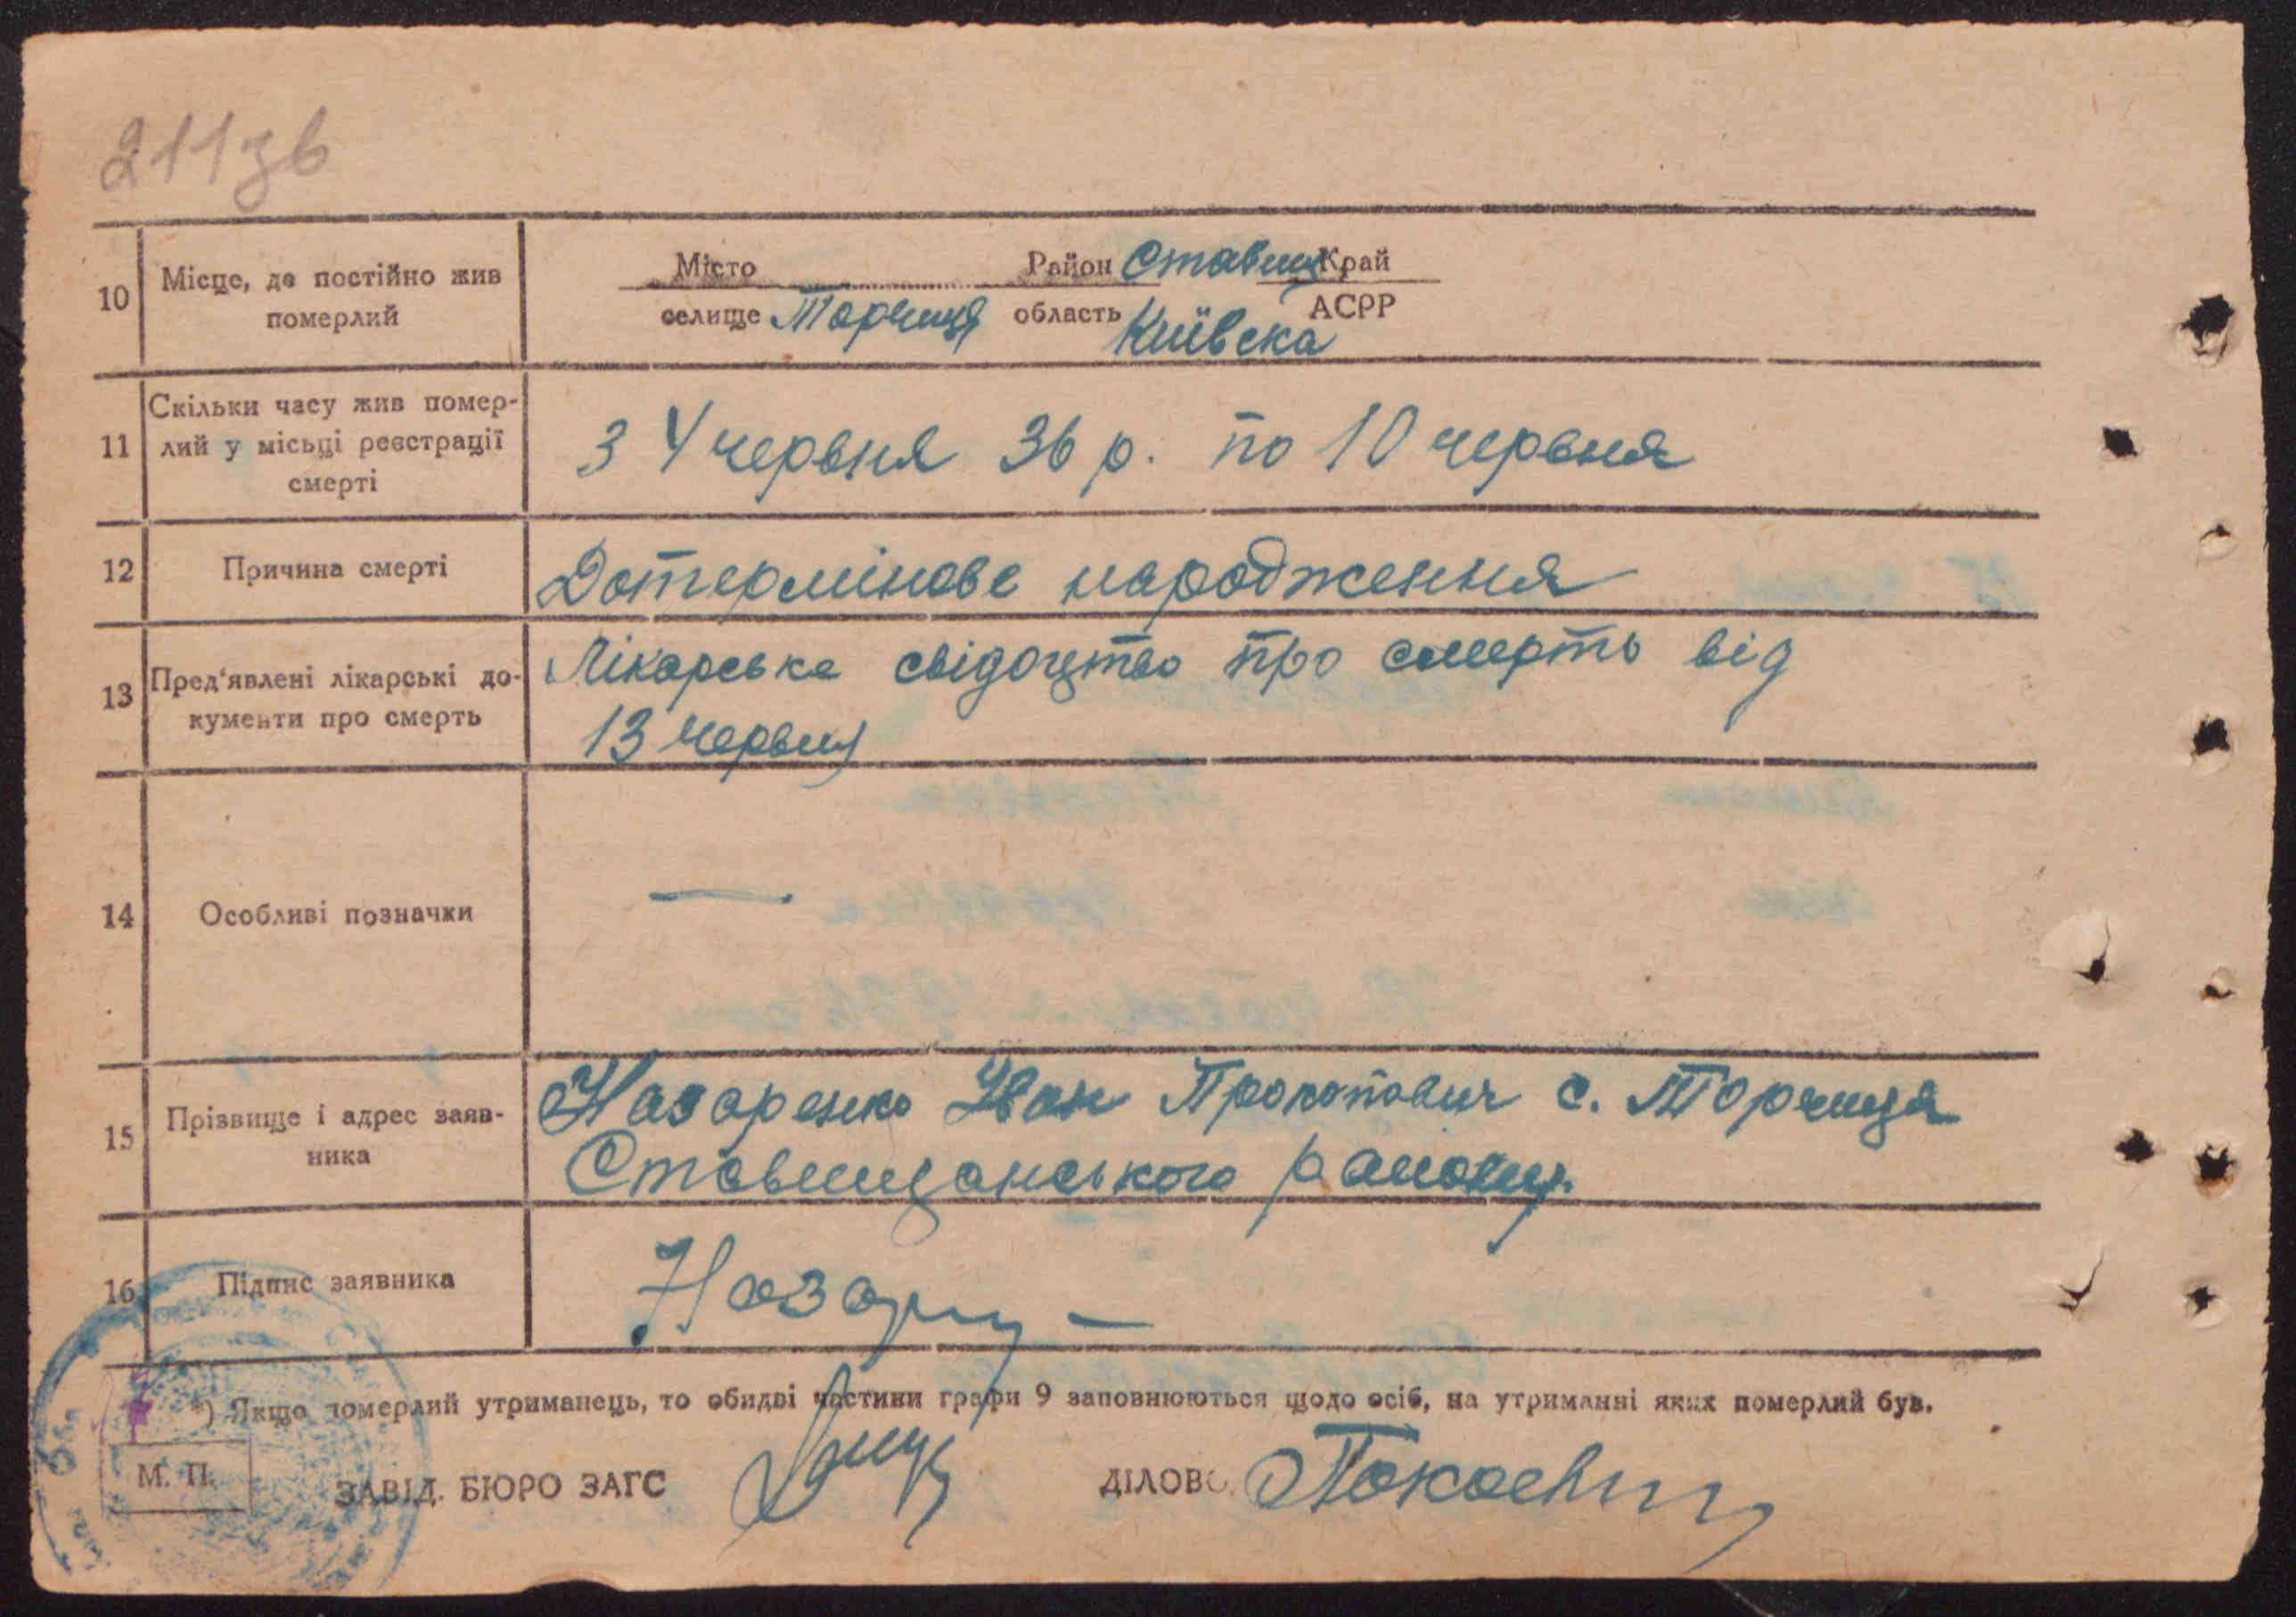 211зв
10 Місце, де постійно жив померлий
Місто Район Ставищ Край
селище Торчиця область Київска АСРР
11 Скільки часу жив помер-
лий у місьці реєстрації
смерті
З 4 червня 36 р. по 10 червня
12 Причина смерті Дотермінове народження
13 Пред'явлені лікарські до-
кументи про смерть
Лікарське свідоцтво про смерть від
13 червня
14 Особливі позначки —
15 Прізвище і адрес заяв-
ника
Назаренко Іван Прокопович с. Торчиця
Ставищанського району.
16 Підпис заявника
*) Якщо померлий утриманець, то обидві частини графи 9 заповнюються щодо осіб, на утриманні яких померлий був.
М. П. ЗАВІД. БЮРО ЗАГС ДІЛОВ